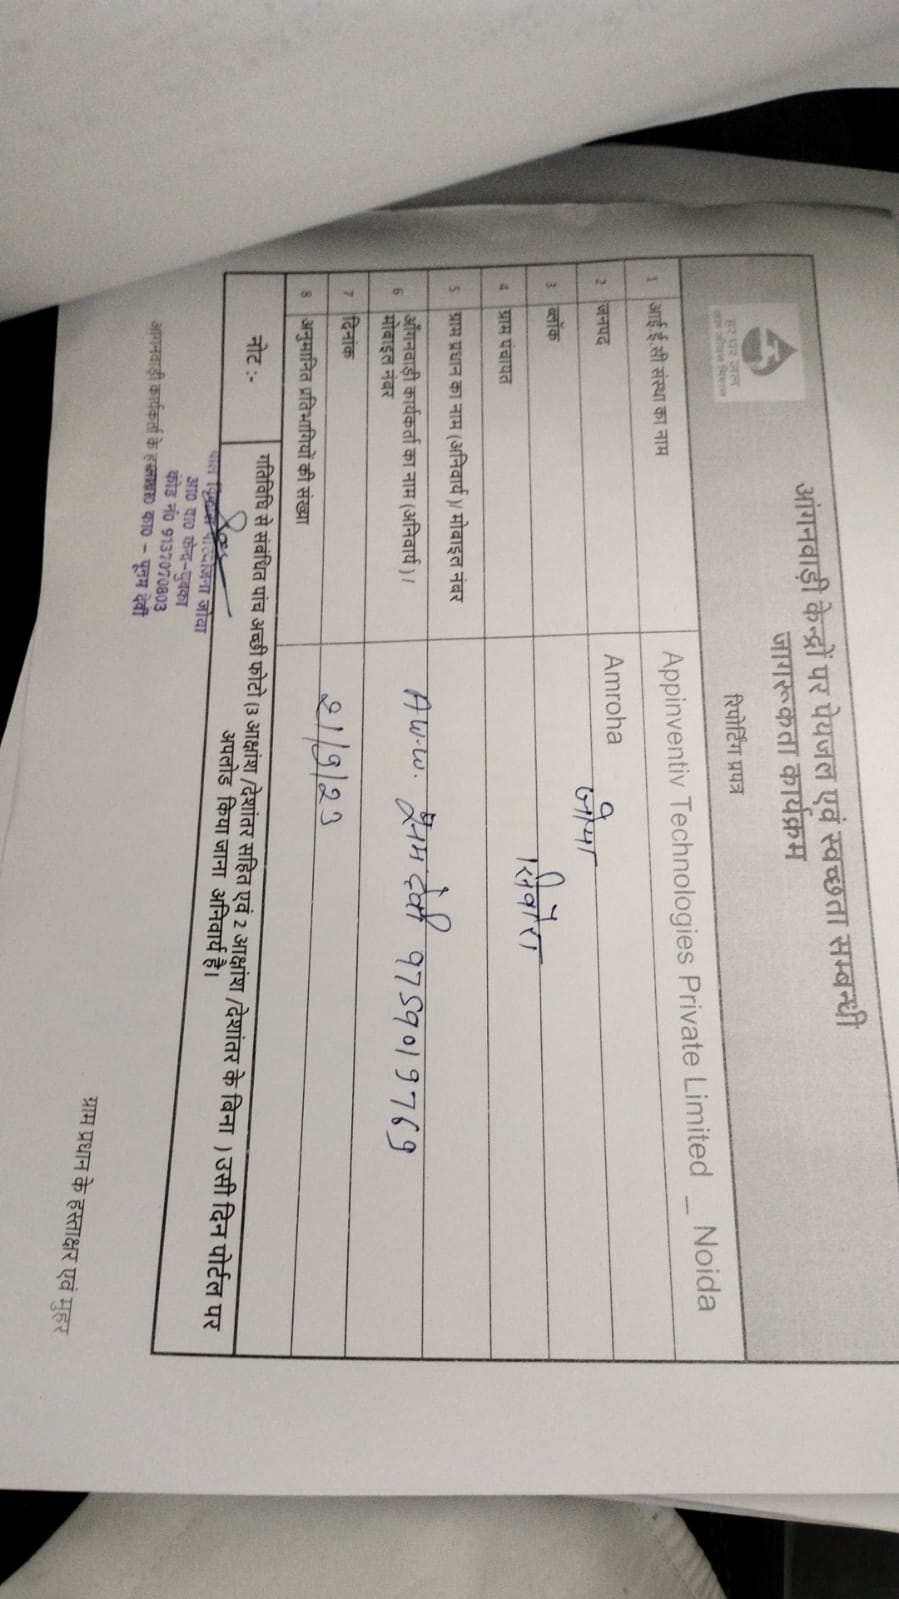 आंगनवाड़ी केन्द्रों पर पेयजल एवं स्वच्छता सम्बन्धी
जागरूकता कार्यक्रम
रिपोर्टिंग प्रपत्र
हर घर जल
जल जीवन मिशन
1 आई.ई.सी संस्था का नाम Appinventiv Technologies Private Limited _ Noida
2 जनपद Amroha
3 ब्लॉक जोया
4 ग्राम पंचायत
5 ग्राम प्रधान का नाम (अनिवार्य)/ मोबाइल नंबर
6 आँगनवाड़ी कार्यकर्ता का नाम (अनिवार्य) / A.W.W. पूनम देवी 9759019769
मोबाइल नंबर
7 दिनांक 21/9/23
8 अनुमानित प्रतिभागियों की संख्या
नोट :- गतिविधि से संबंधित पांच अच्छी फोटो (3 आक्षांश /देशांतर सहित एवं 2 आक्षांश /देशांतर के बिना ) उसी दिन पोर्टल पर
अपलोड किया जाना अनिवार्य है।
बाल विकास परियोजना जोया
आं० वा० केन्द्र-
कोड नं० 9137070803
कार्य० - पूनम देवी
आंगनवाड़ी कार्यकर्ता के
ग्राम प्रधान के हस्ताक्षर एवं मुहर